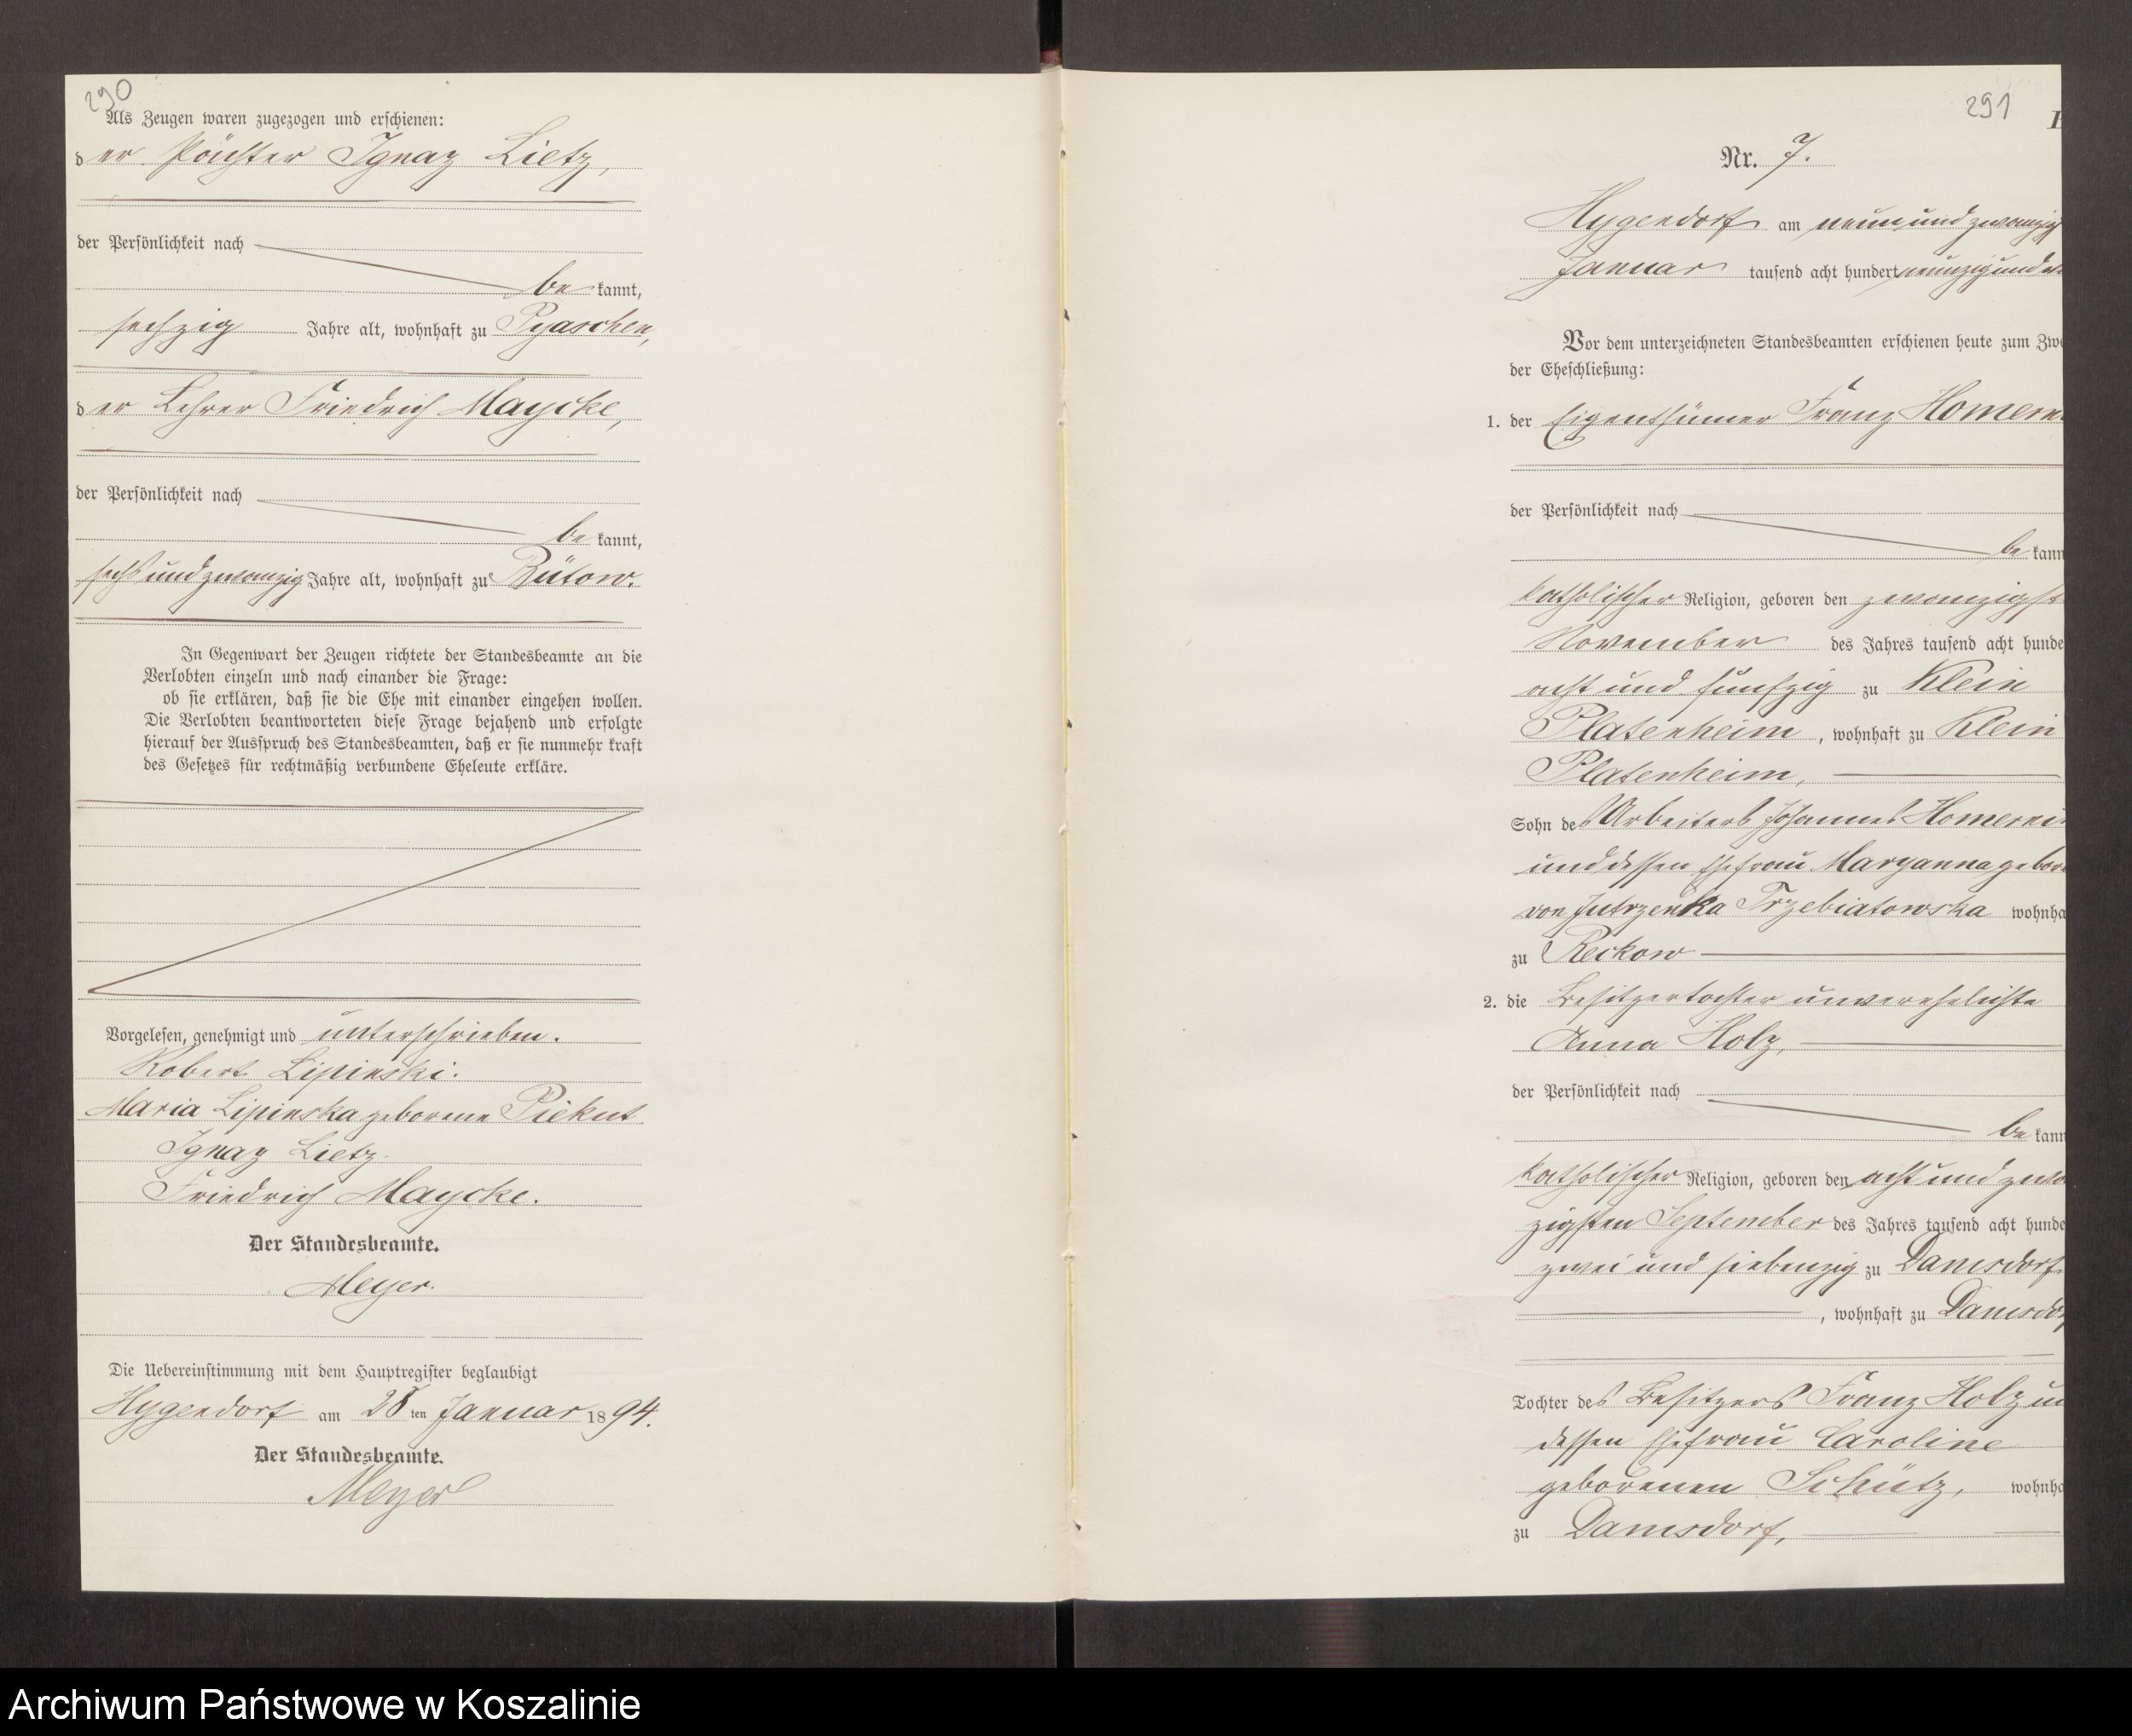 290
Als Zeugen waren zugezogen und erschienen:
der Pächter Ignaz Lietz,
der Persönlichkeit nach
bekannt,
sechzig Jahre alt, wohnhaft zu Pyaschen,
der Lehrer Friedrich Maycke,
der Persönlichkeit nach
bekannt,
sechs und zwanzig Jahre alt, wohnhaft zu Bütow.
In Gegenwart der Zeugen richtete der Standesbeamte an die
Verlobten einzeln und nach einander die Frage:
ob sie erklären, daß sie die Ehe mit einander eingehen wollen.
Die Verlobten beantworteten diese Frage bejahend und erfolgte
hierauf der Ausspruch des Standesbeamten, daß er sie nunmehr kraft
des Gesetzes für rechtmäßig verbundene Eheleute erkläre.
Vorgelesen, genehmigt und unterschrieben.
Robert Lipinski.
Maria Lipinska geborene Piekut
Ignaz Lietz.
Friedrich Maycke.
Der Standesbeamte.
Meyer.
Die Uebereinstimmung mit dem Hauptregister beglaubigt
Hygendorf am 28ten Januar 1894.
Der Standesbeamte.
Meyer
291
Nr. 7.
Hygendorf am neun und zwanzig
Januar tausend acht hundert neunzig und
Vor dem unterzeichneten Standesbeamten erschienen heute zum Zwe
der Eheschließung:
1. der Eigenthümer Franz Homern
der Persönlichkeit nach
bekann
katholischer Religion, geboren den zwanzigst
November des Jahres tausend acht hunde
acht und fünfzig zu Klein
Platenheim, wohnhaft zu Klein
Platenheim,
Sohn des Arbeiters Johannes Homerni
und dessen Ehefrau Maryanna gebor
von Jutrzenka Trzebiatowska wohnha
zu Reckow
2. die Besitzertochter unverehelichte
Anna Holz,
der Persönlichkeit nach
bekann
katholischer Religion, geboren den acht und zwa
zigsten September des Jahres tausend acht hunde
zwei und siebenzig zu Damsdorf
, wohnhaft zu Damsdo
Tochter des Besitzers Franz Holz un
dessen Ehefrau Caroline
geborenen Schütz, wohnha
zu Damsdorf,
Archiwum Państwowe w Koszalinie